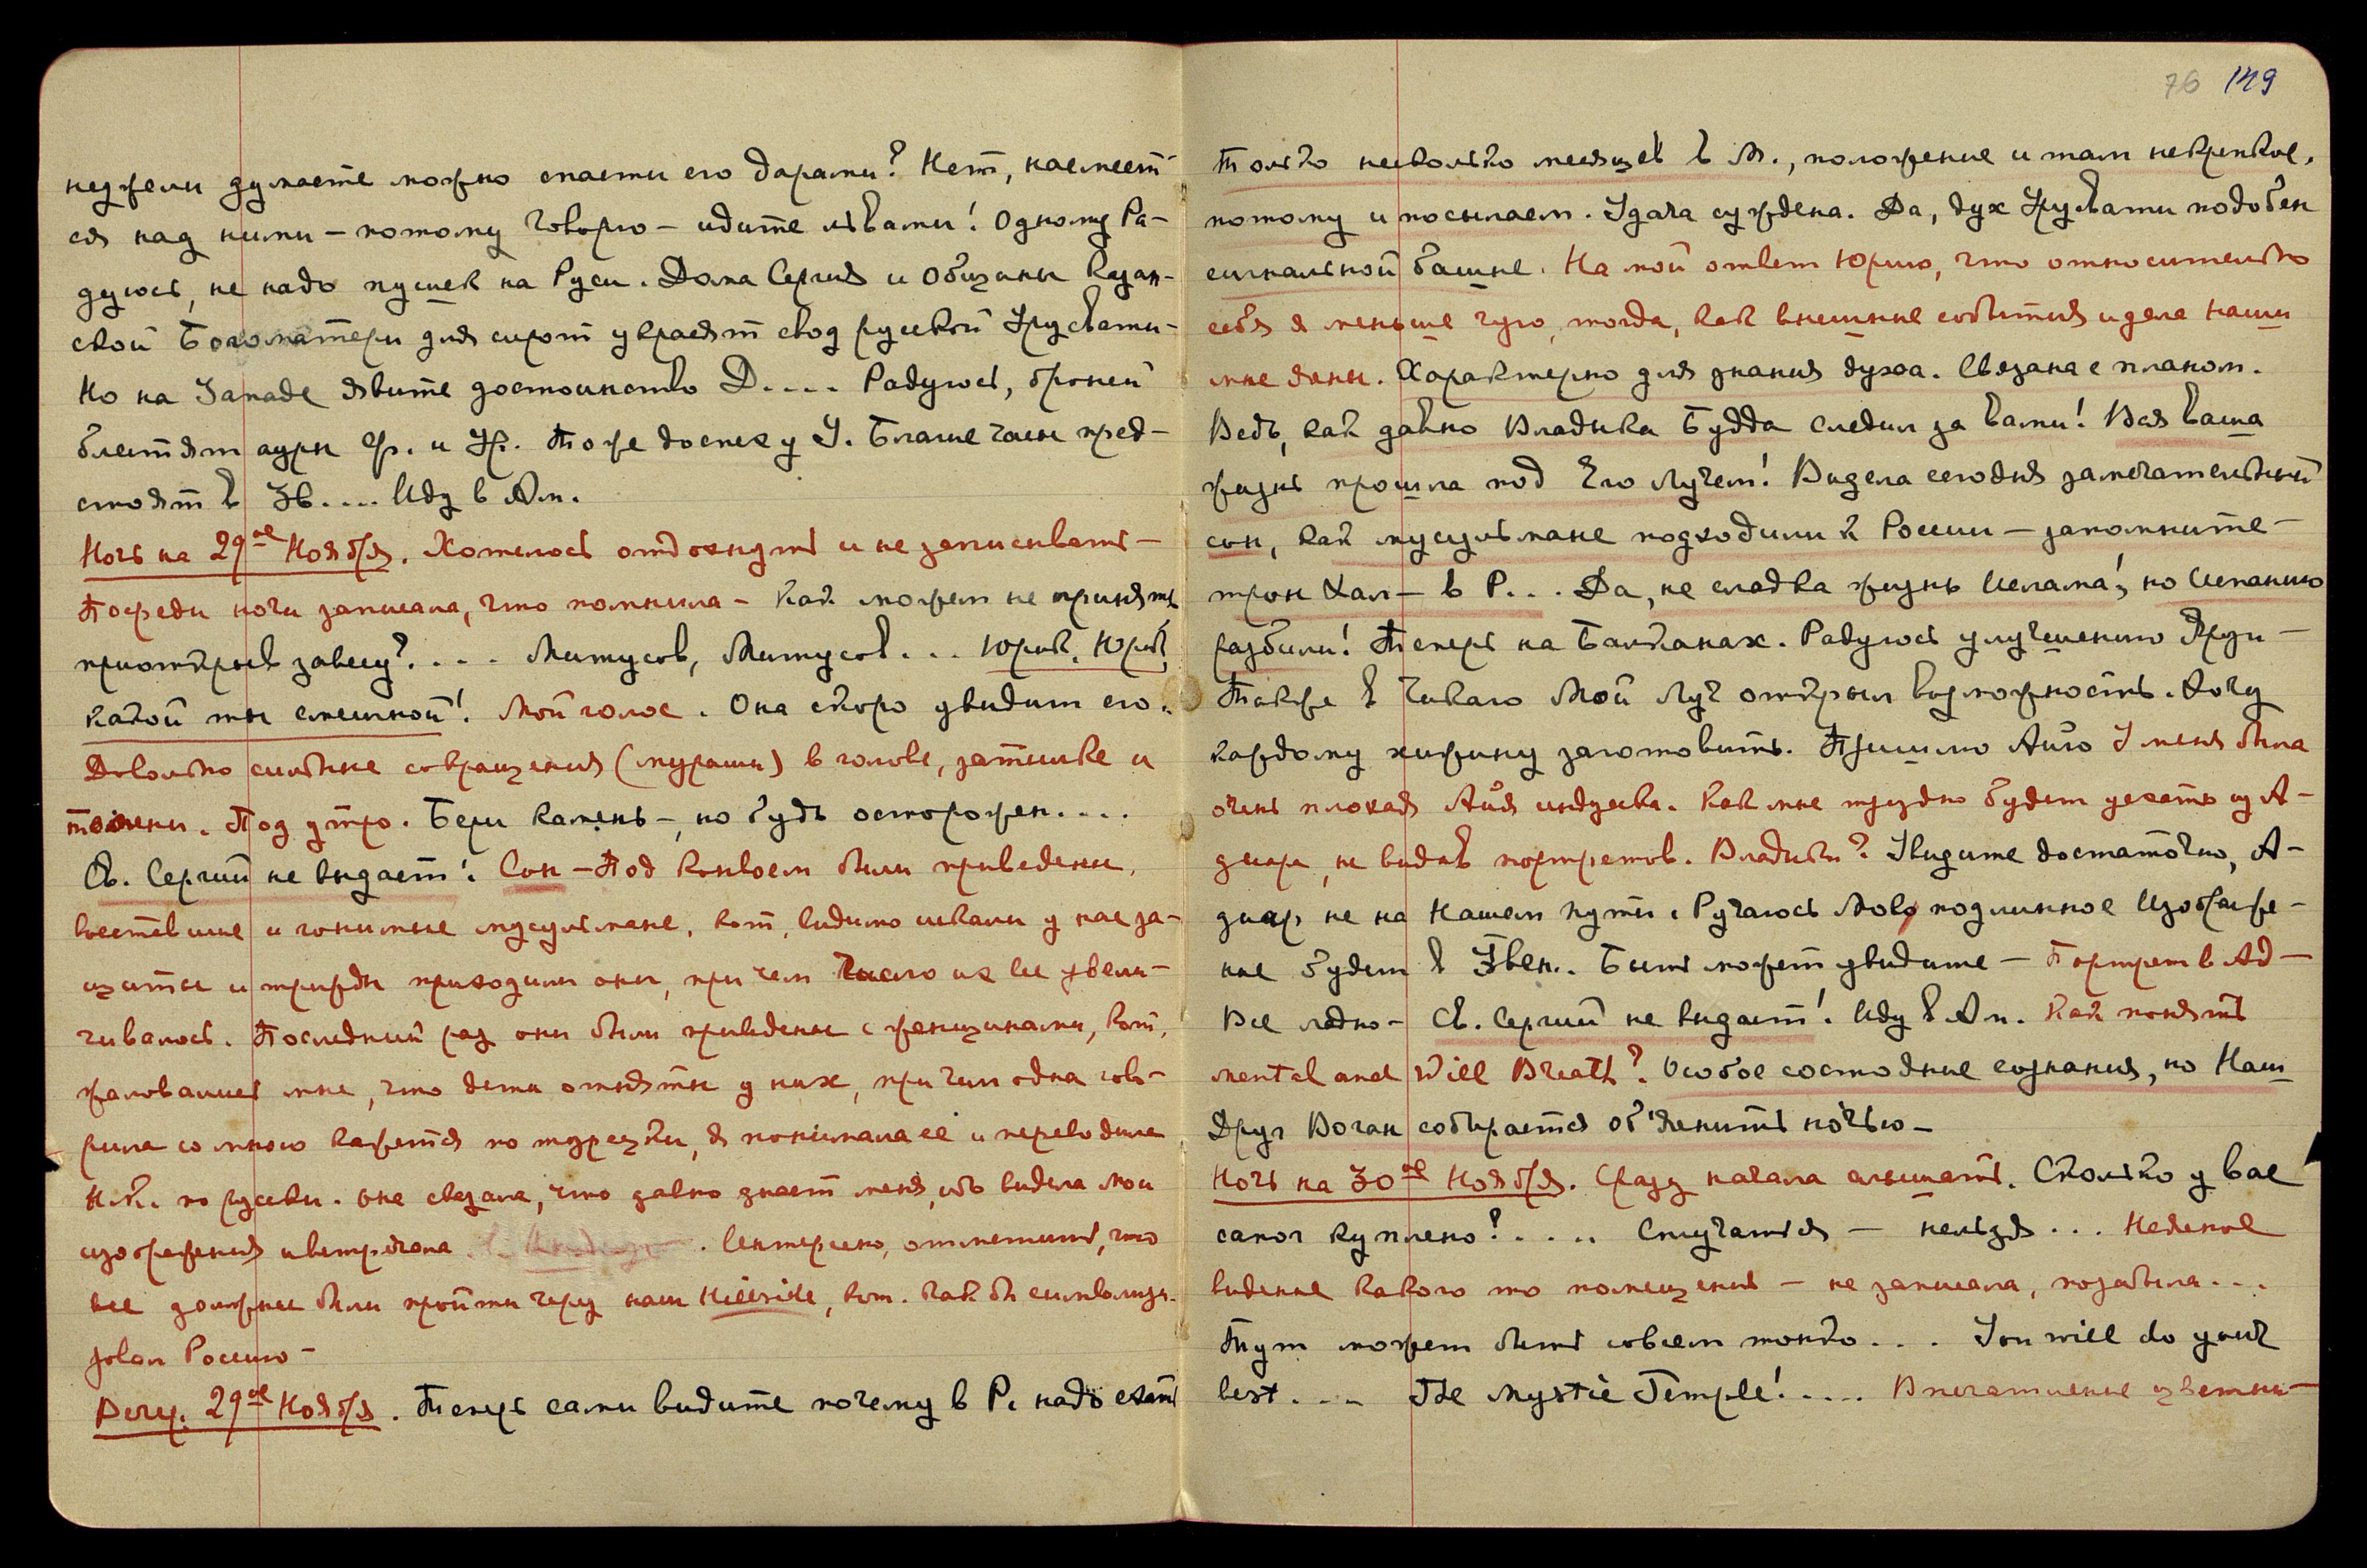 неужели думаете можно спасти его дарами? Нет, насмеют-
ся над ними – потому говорю – идите львами! Одному Ра-
дуюсь, не надо пушек на Руси. Дома Сергия и Общины Казан-
ской Богоматери для сирот украсят свод русской Урусвати –
Но на Западе явите достоинство Д.... Радуюсь, броней
блестят ауры Ф. и Ур. Тоже доспех у У. Благие часы пред-
стоят в Зв.... Иду в Ам.
Ночь на 29ое Ноября. Хотелось отдохнуть и не записывать –
Посреди ночи записала, что помнила – Как можем не принять
приоткрыв завесу?.... Митусов, Митусов... Юрий, Юрий,
какой ты смешной! Мой голос. Она скоро увидит его.
Довольно сильные сокращения (мураши) в голове, затылке и
темени. Под утро. Бери камень –, но будь осторожен....
Св. Сергий не выдаст! Сон – Под конвоем были приведены,
восставшие и гонимые мусульмане, кот. видимо искали у нас за-
щиты и трижды приходили они, при чем число их все увели-
чивалось. Последний раз они были приведены с женщинами, кот.
жаловались мне, что дети отняты у них, при чем одна гово-
рила со мною кажется по турецки, я понимала её и переводила
Н.К. по русски. Она сказала, что давно знает меня, ибо видела мои
изображения и встречала. Интересно, отметить, что
все должны были пройти через наш Hillside, кот. как бы символизи-
ровал Россию –
Веч. 29ое Ноября. Теперь сами видите почему в Р. надо ехать
76 149
только несколько месяцев в М., положение и там некрепкое,
потому и посылаем. Удача суждена. Да, дух Урусвати подобен
сигнальной башне. На мой ответ Юрию, что относительно
себя я меньше чую, тогда, как внешние события и дела наши
мне даны. Характерно для знания духа. Связана с планом.
Ведь, как давно Владыка Будда следил за вами! Вся ваша
жизнь прошла под Его Лучем! Видела сегодня замечательный
сон, как мусульмане подходили к России – запомните –
трон Хал – в Р... Да, не сладка жизнь Ислама, но Испанию
разбили! Теперь на Балканах. Радуюсь улучшению Яруи –
Также в Чикаго Мой Луч открыл возможность. Хочу
каждому хижину заготовить. Пришлю Айю У меня была
очень плохая Айя индуска. Как мне трудно будет уехать из А-
диара, не видав портретов. Владыки? Увидите достаточно, А-
диар не на Нашем пути. Ручаюсь Мое подлинное Изображе-
ние будет в Звен.. Быть может увидите – Портрет в Ад –
Все ладно – Св. Сергий не выдаст! Иду в Ам. Как понять
mental and Will Breath? Особое состояние сознания, но Наш
Друг Воган собирается об'яснить ночью –
Ночь на 30ое Ноября. Сразу начала слышать. Сколько у вас
сапог куплено?.... Стучаться – нельзя... Неясное
видение какого то помещения – не записала, позабыла...
Тут может быть совсем тонко.... You will do your
best.... The Mystic Temple!.... Впечатление цветны –